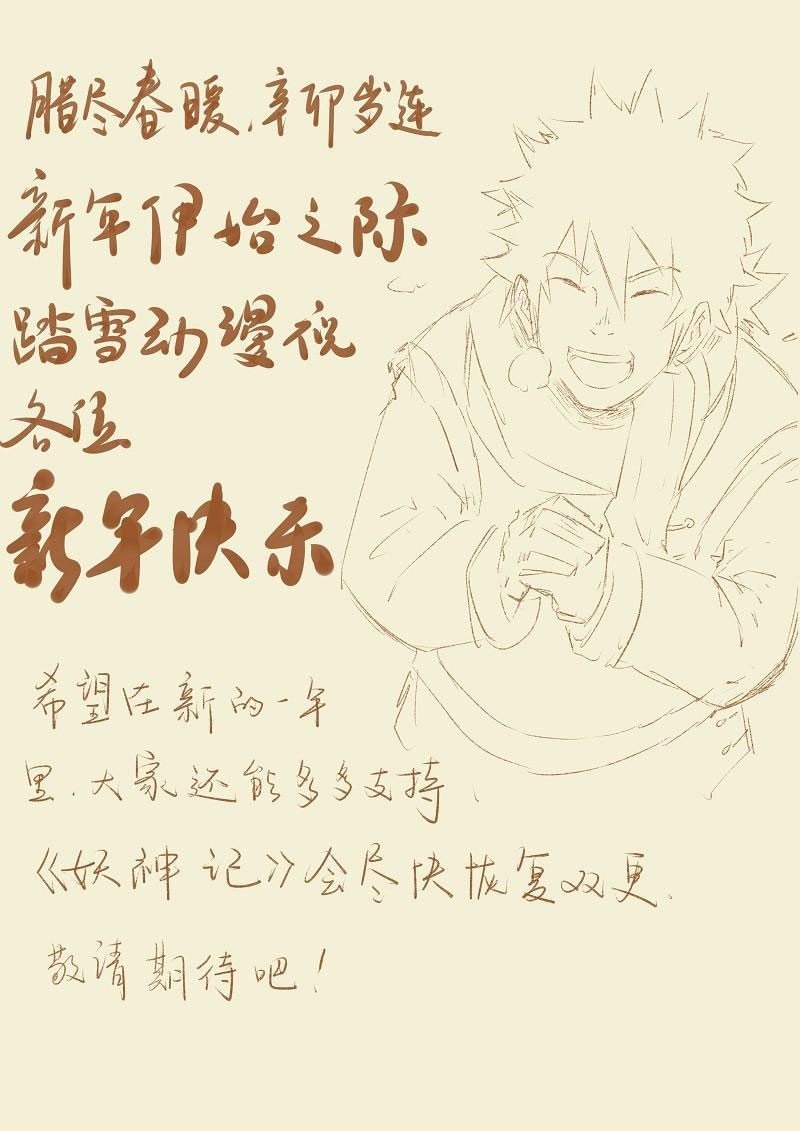 腊尽春暖,辛卯岁连
新年伊始之际
踏雪动漫祝
各位
新年快乐
希望在新的一年
里,大家还能多多支持
《妖神记》会尽快恢复双更.
敬请期待吧!